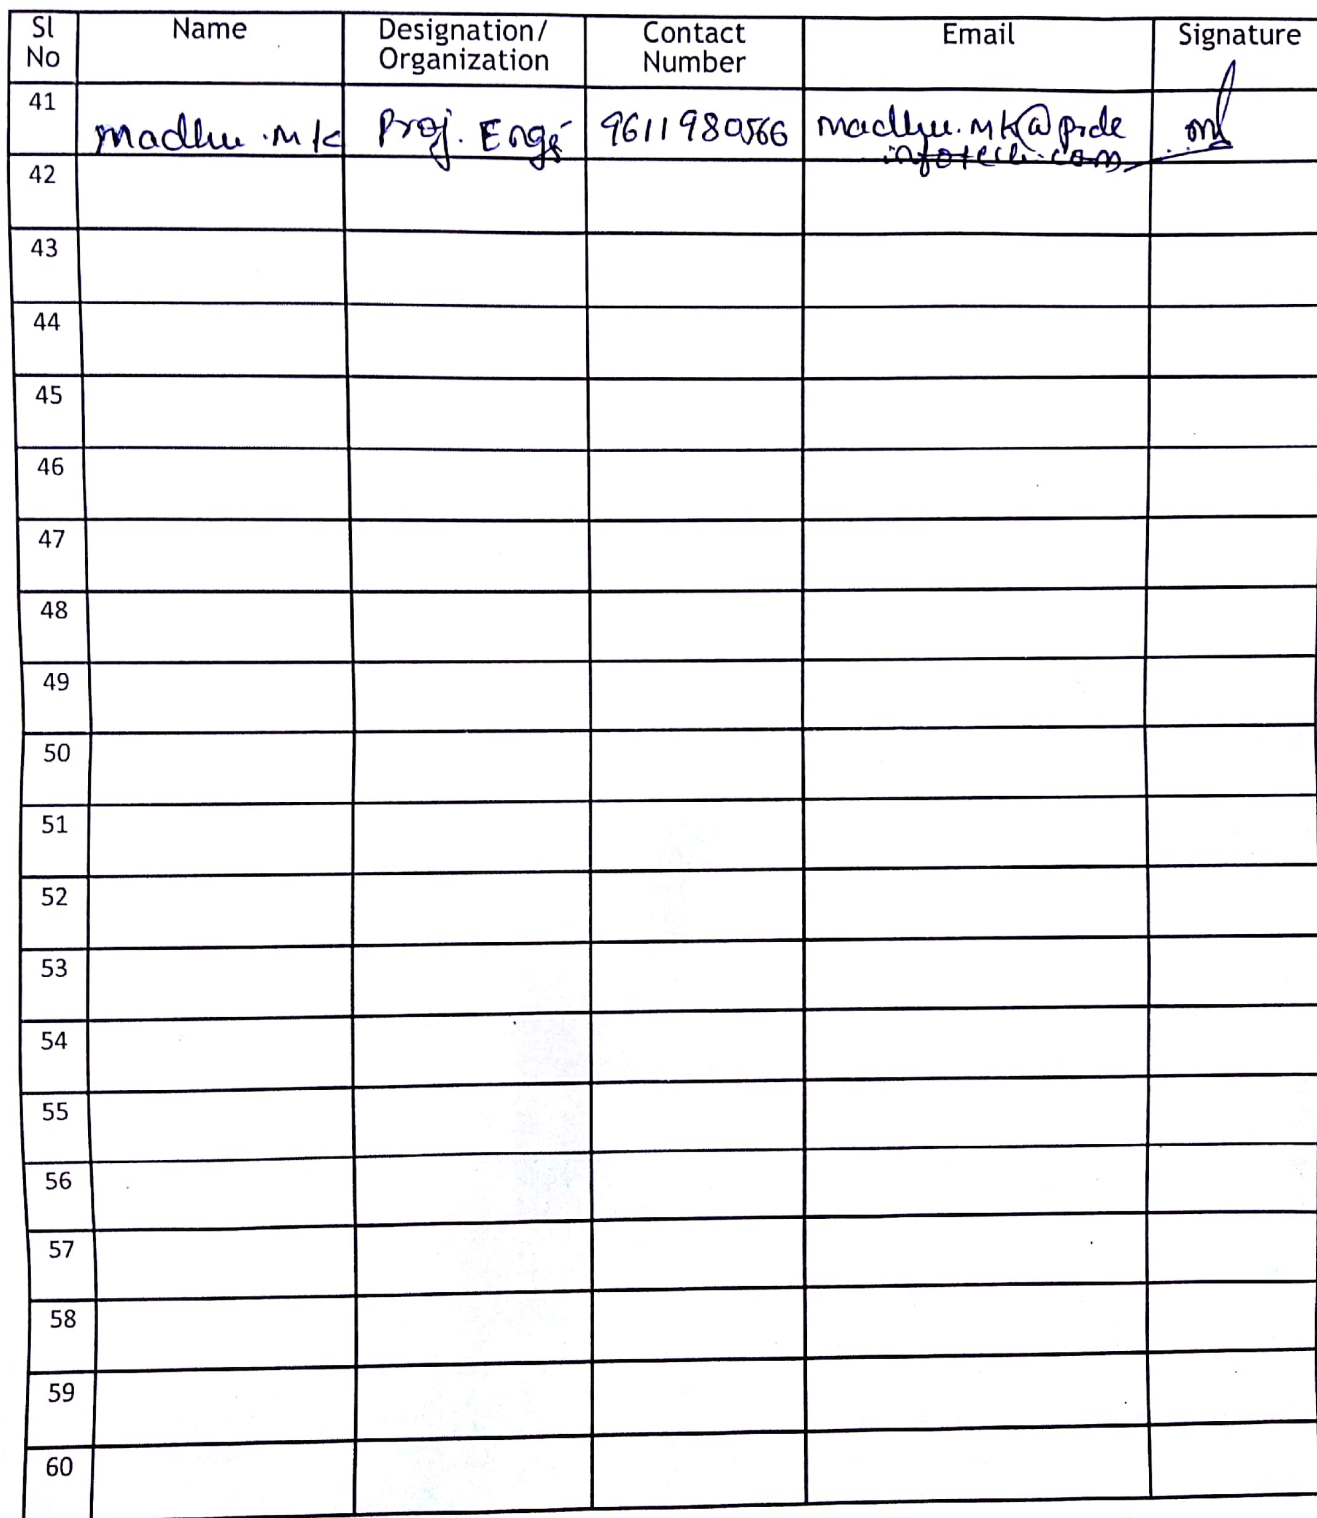 Sl No Name Designation/ Organization Contact Number Email Signature
41 Madhu.MK Proj. Engr 9611980566 madhu.mk@pride
infotech.com
42
43
44
45
46
47
48
49
50
51
52
53
54
55
56
57
58
59
60